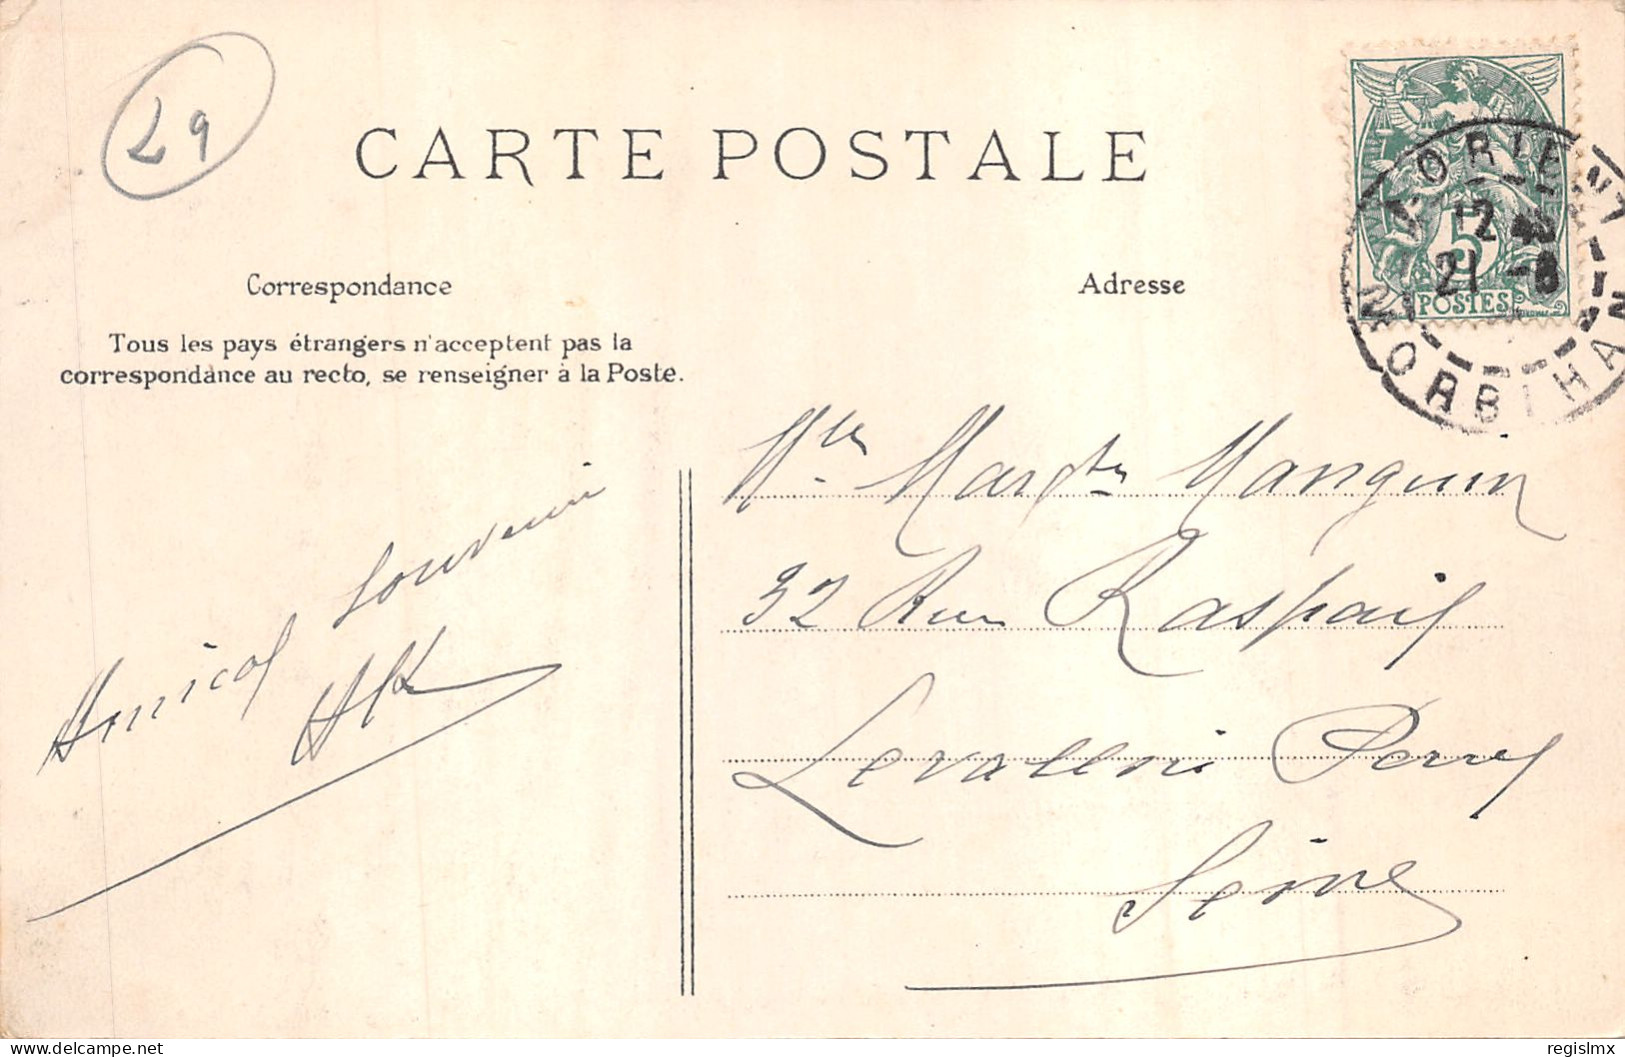 29
CARTE POSTALE
LORIENT
12
21 -8
MORBIHAN
5
POSTES
Correspondance
Adresse
Tous les pays étrangers n'acceptent pas la
correspondance au recto, se renseigner à la Poste.
Amical Souvenir
Mlle Margte Manguin
32 Rue Raspail
Levallois Perret
Seine
delcampe.net
regislmx